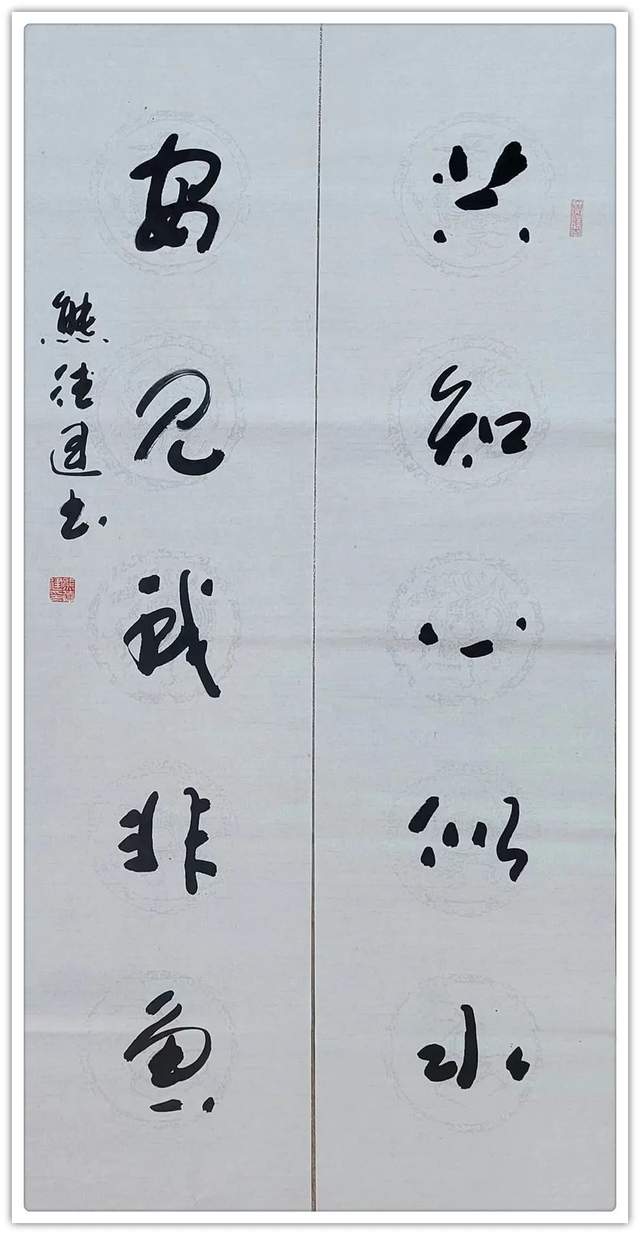 共知心似水
安见我非鱼
熊德建书